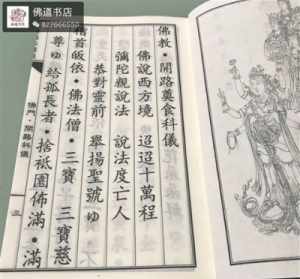 佛道书店
佛教·開路奠食科儀
佛說西方境 迢迢十萬程
彌陀親說法 說法度亡人
恭對靈前 舉揚聖號ゆ
稽首皈依·佛法僧·三寶·三寶慈
尊ゆ給孤長者·捨祇園佈滿·滿
佛門·開路科儀
三